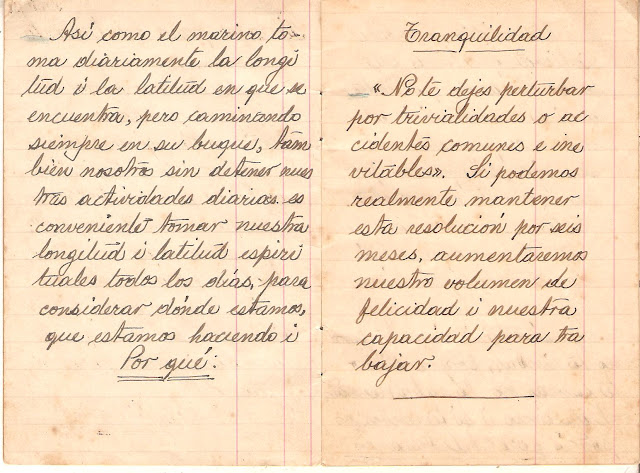 Así como el marino to-
ma diariamente la longi
tud i la latitud en que se
encuentra, pero caminando
siempre en su buque, tam
bien nosotros sin detener nues
tras actividades diarias es
conveniente tomar nuestra
longitud i latitud espiri
tuales todos los días, para
considerar dónde estamos,
que estamos haciendo i
Por qué:
Tranquilidad
"No te dejes perturbar
por trivialidades o ac
cidentes comunes e ine
vitables". Si podemos
realmente mantener
esta resolución por seis
meses, aumentaremos
nuestro volumen de
felicidad i nuestra
capacidad para tra
bajar.